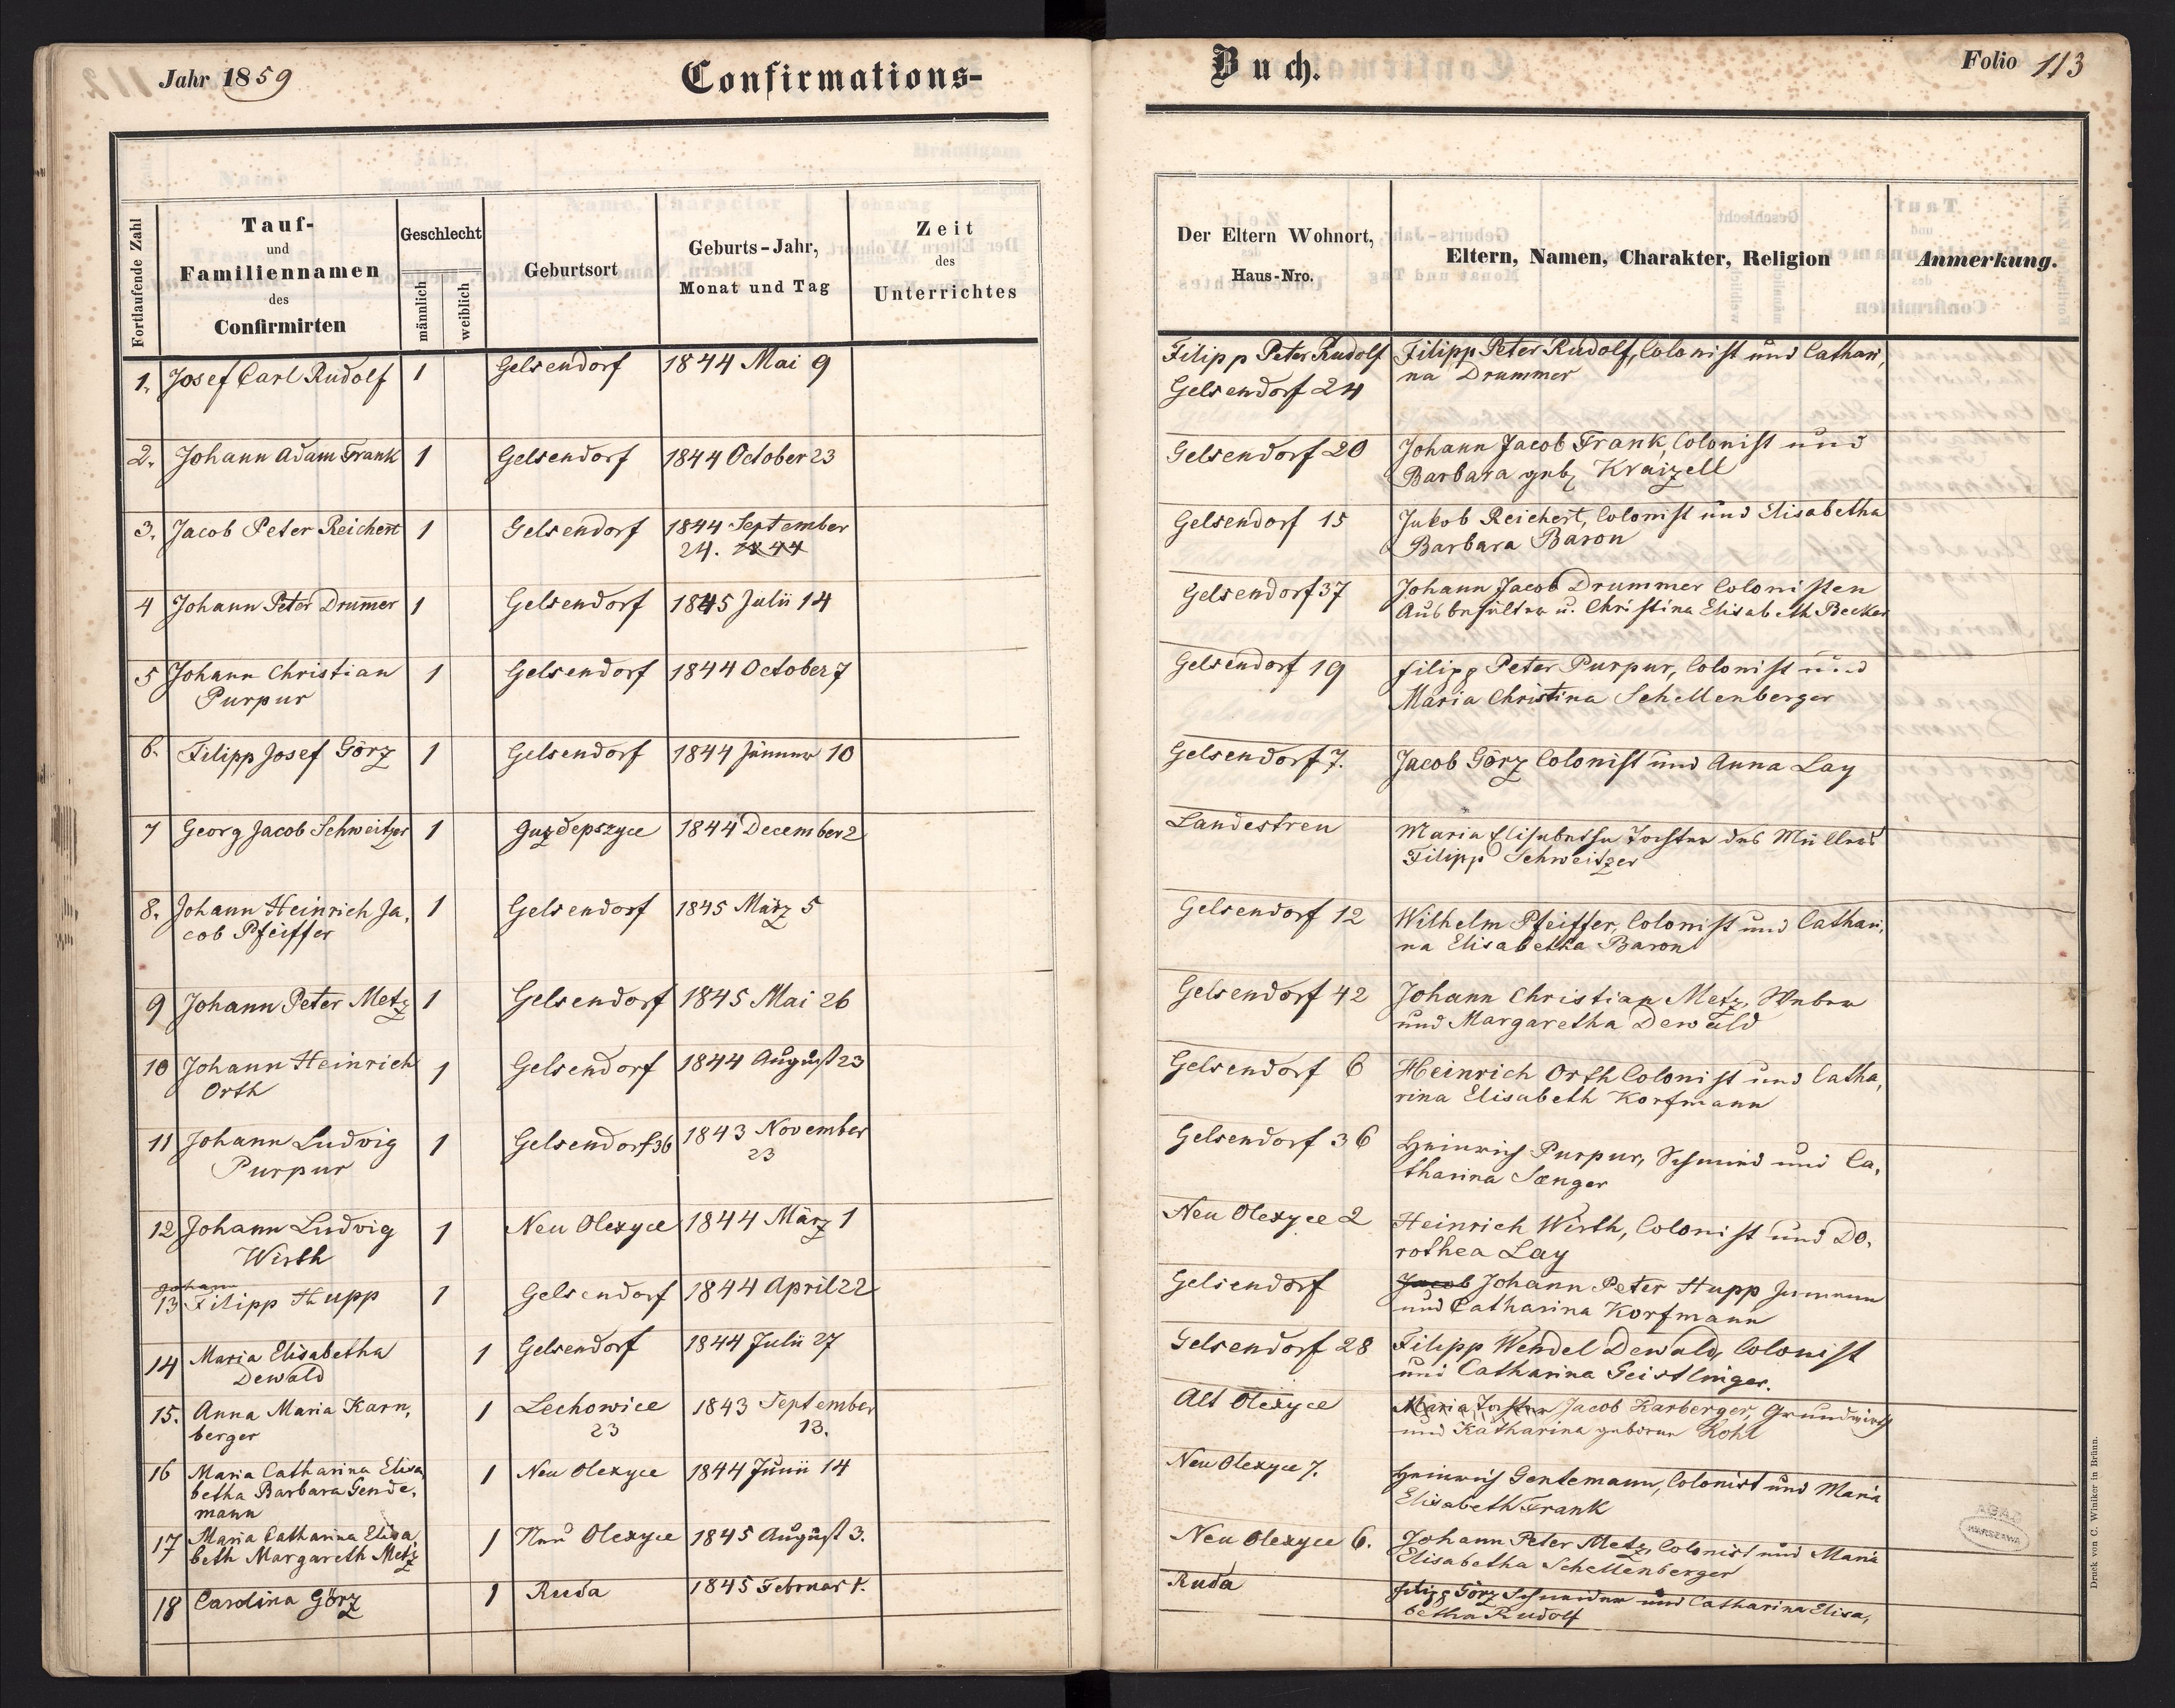 Jahr 1859
Confirmations-
Buch.
Folio 113
Fortlaufende Zahl
Tauf-
und
Familiennamen
des
Confirmirten
Geschlecht
männlich
weiblich
Geburtsort
Geburts-Jahr,
Monat und Tag
Zeit
des
Unterrichtes
Der Eltern Wohnort,
Haus-Nro.
Eltern, Namen, Charakter, Religion
Anmerkung.
1. Josef Carl Rudolf 1 Gelsendorf 1844 Mai 9 Filipp Peter Rudolf Filipp Peter Rudolf, Colonist und Cathari,
Gelsendorf 24 na Drummer
2. Johann Adam Frank 1 Gelsendorf 1844 October 23 Gelsendorf 20 Johann Jacob Frank, Colonist und
Barbara geb. Kraizell
3. Jacob Peter Reichert 1 Gelsendorf 1844 September Gelsendorf 15 Jakob Reichert, Colonist und Elisabetha
24. 1844 Barbara Baron
4 Johann Peter Drum̄er 1 Gelsendorf 1845 Julii 14 Gelsendorf 37 Johann Jacob Drummer Colonisten
u. Christina Elisabeth Becker
5 Johann Christian 1 Gelsendorf 1844 October 7 Gelsendorf 19 Filipp Peter Purpur, Colonist und
Purpur Maria Christina Schellenberger
6. Filipp Josef Görz 1 Gelsendorf 1844 Jänner 10 Gelsendorf 7. Jacob Görz Colonist und Anna Lay
7 Georg Jacob Schweitzer 1 1844 December 2 Landestreu Maria Elisabetha Tochter des Müllers
Filipp Schweitzer
8. Johann Heinrich Ja, 1 Gelsendorf 1845 März 5 Gelsendorf 12 Wilhelm Pfeiffer, Colonist und Cathari,
cob Pfeiffer na Elisabetha Baron
9 Johann Peter Metz 1 Gelsendorf 1845 Mai 26 Gelsendorf 42 Johann Christian Metz, Weber
und Margaretha Dewald
10 Johann Heinrich 1 Gelsendorf 1844 August 23 Gelsendorf 6 Heinrich Orth Colonist und Catha,
Orth rina Elisabeth Korfmann
11 Johann Ludvig 1 Gelsendorf 36 1843 November Gelsendorf 36 Heinrich Purpur, Schmied und Ca,
Purpur 23 tharina Sænger
12 Johann Ludvig 1 Neu Olexyce 1844 März 1 Neu Olexyce 2 Heinrich Wirth, Colonist und Do,
Wirth rothea Lay
Johann
13 Filipp Hupp 1 Gelsendorf 1844 April 22 Gelsendorf Jacob Johann Peter Hupp
und Catharina Korfmann
14 Maria Elisabetha 1 Gelsendorf 1844 Julii 27 Gelsendorf 28 Filipp Wendel Dewald, Colonist
Dewald und Catharina Geistlinger.
15. Anna Maria Karn, 1 Lechowice 1843 September Alt Olexyce Maria Tochter Jacob Karberger, Grundwirth
berger 23 13. und Katharina geborne Kohl
16 Maria Catharina Elisa, 1 Neu Olexyce 1844 Junii 14 Neu Olexyce 7. Heinrich Gentemann, Colonist und Maria
betha Barbara Gende, Elisabeth Frank
mann
17 Maria Catharina Elisa, 1 Neu Olexyce 1845 August 3. Neu Olexyce 6. Johann Peter Metz, Colonist und Maria
beth Margareth Metz Elisabetha Schellenberger
18 Carolina Görz 1 Ruda 1845 Februar 1. Ruda Filipp Görz Schneider und Catharina Elisa,
betha Rudolf
AGAD
WARSZAWA
Druck von C. Winiker in Brünn.